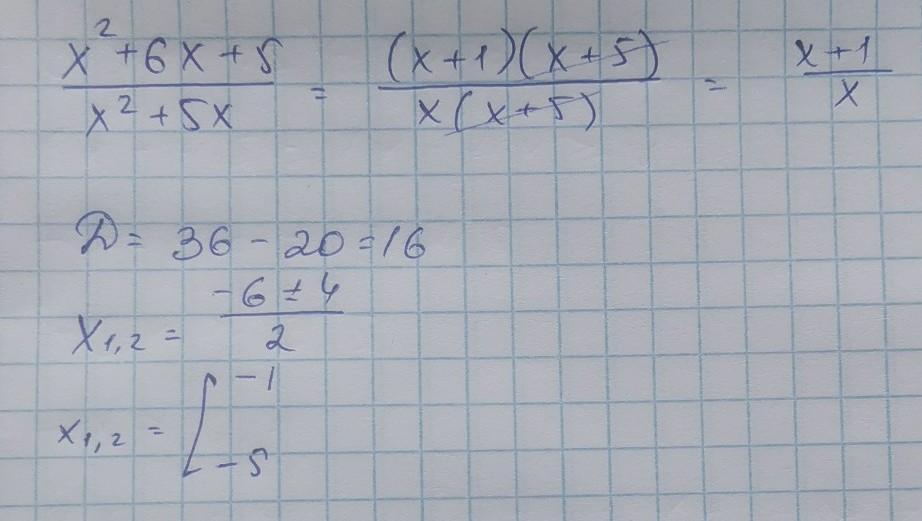 x² + 6x + 5 / x² + 5x = (x + 1)(x + 5) / x(x + 5) = x + 1 / x
D = 36 - 20 = 16
x₁,₂ = -6 ± 4 / 2
x₁,₂ = [ -1
-5